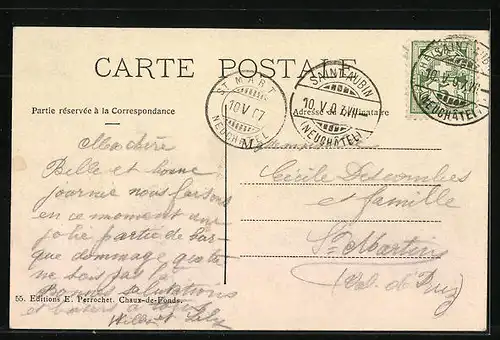 CARTE POSTALE
Partie réservée à la Correspondance
Adresse du Destinataire
ST MART
10 V 07
NEUCHÂTEL
SAINT-AUBIN
10. V. 07. VII
(NEUCHÂTEL)
SAINT-AUBIN
10. V. 07. VII
(NEUCHÂTEL)
Ma chère
Belle et bonne
journée nous faisons
en ce moment une
jolie partie de bar-
que dommage que tu
ne sois pas là
Bonnes salutations
et baisers à
et Lily
Cécile Descombes
et famille
St Martin
(Val. de Ruz)
55. Editions E. Perrochet. Chaux-de-Fonds.